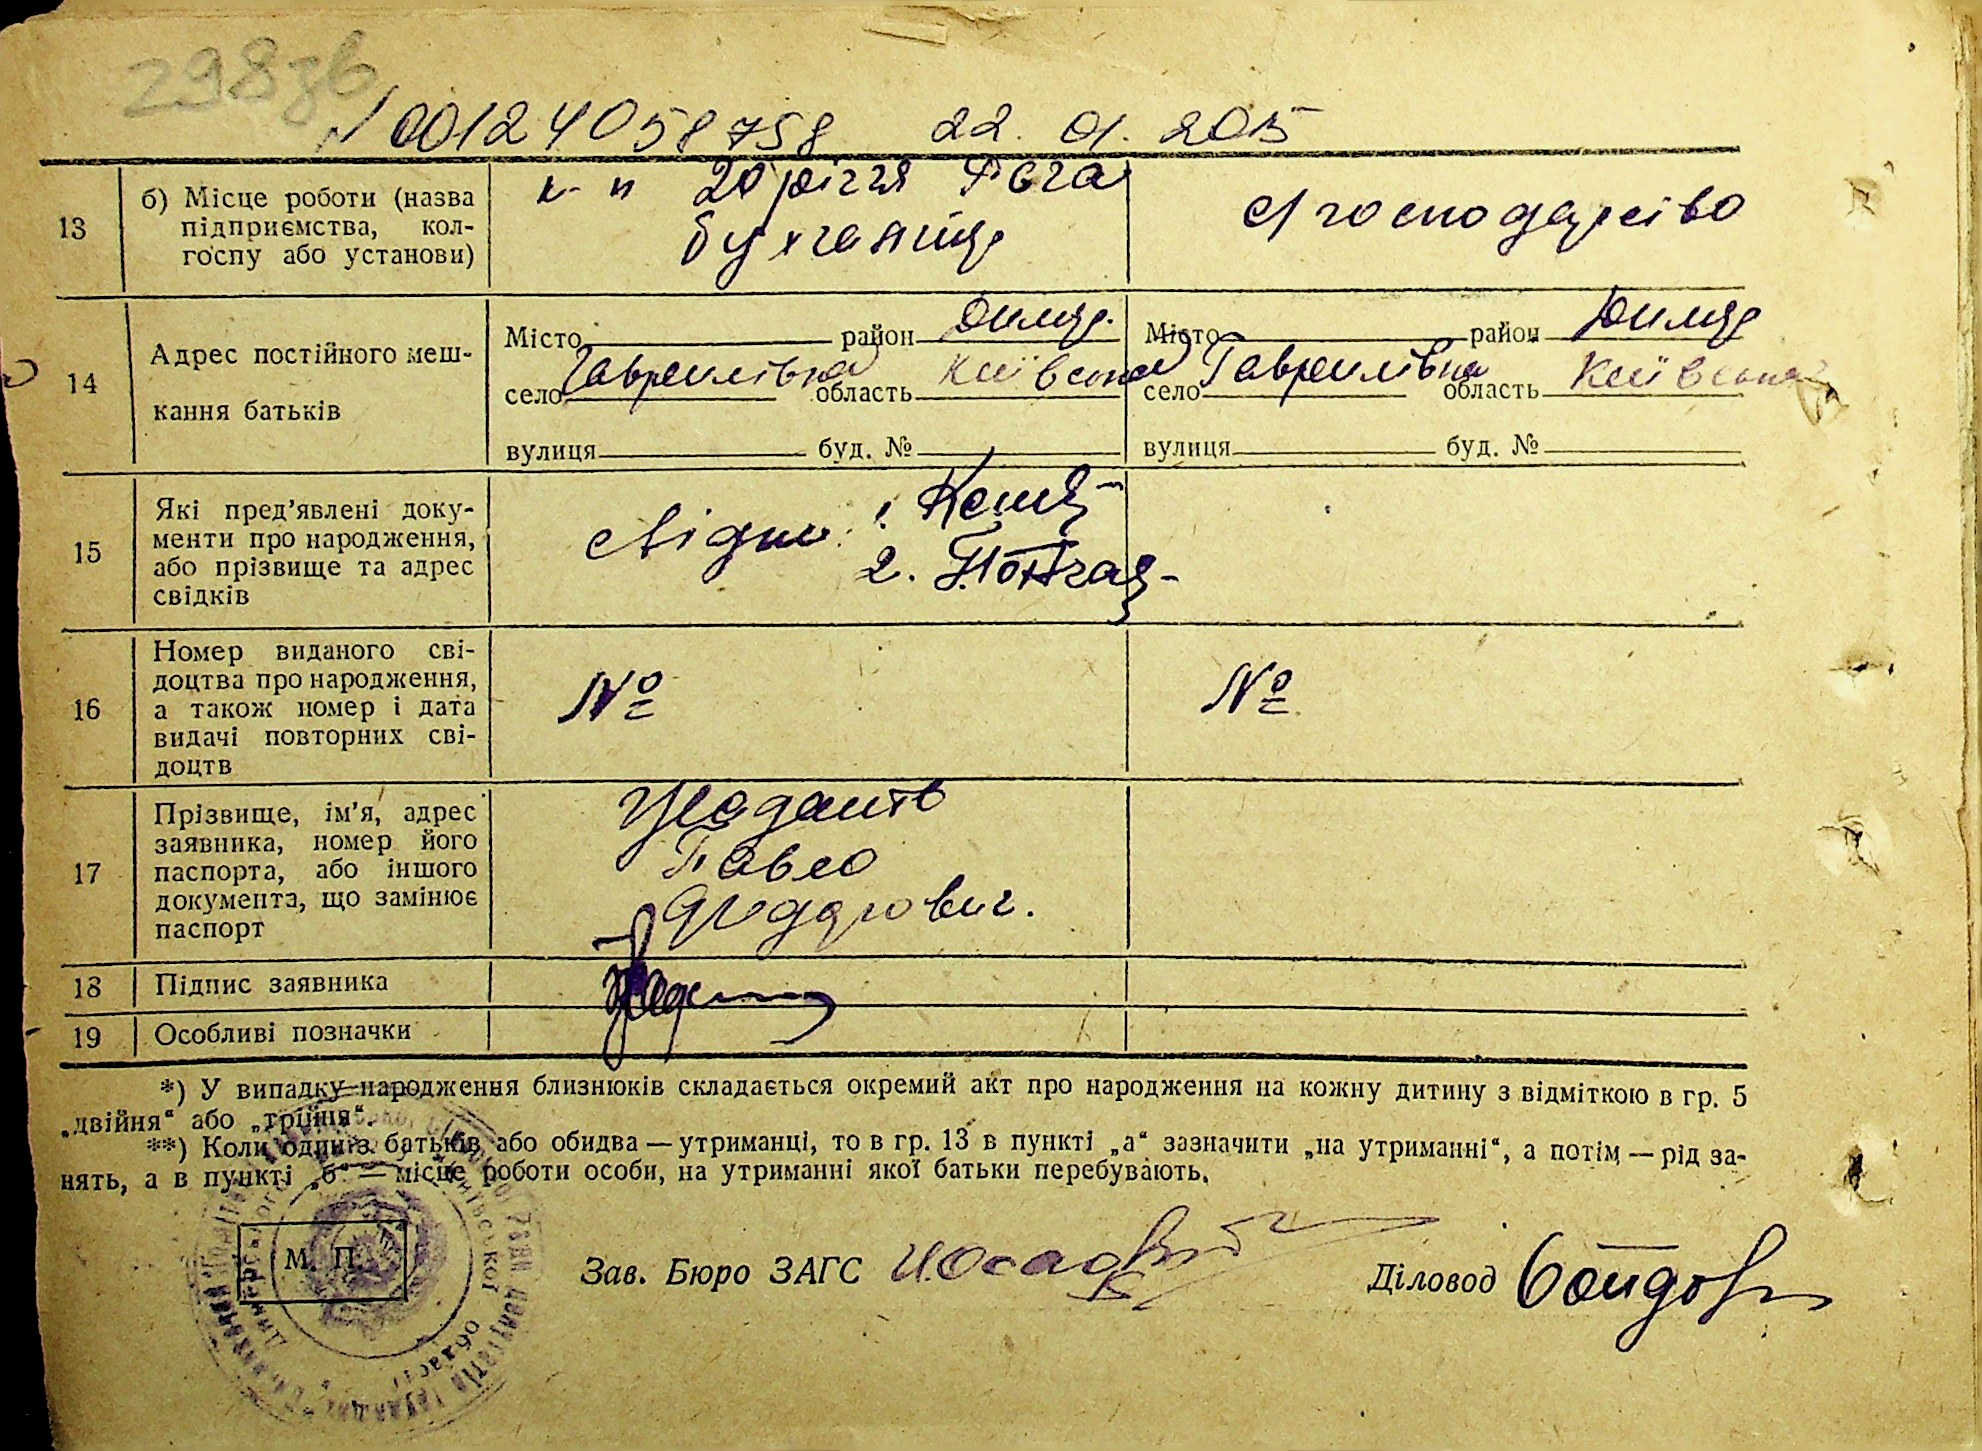 298зв
N 00124058758 22.01.2015
13
б) Місце роботи (назва
підприємства, кол-
госпу або установи)
к-п 20 річчя
бухгалтер
господарство
14
Адрес постійного меш-
кання батьків
Місто район Димер.
село Гаврилівка область Київська
вулиця буд. №
Місто район Димер
село Гаврилівка область Київська
вулиця буд. №
15
Які пред'явлені доку-
менти про народження,
або прізвище та адрес
свідків
свідки: 1.
2.
16
Номер виданого сві-
доцтва про народження,
а також номер і дата
видачі повторних сві-
доцтв
№
№
17
Прізвище, ім'я, адрес
заявника, номер його
паспорта, або іншого
документа, що замінює
паспорт
Павло
Федорович.
18 Підпис заявника
19 Особливі позначки
*) У випадку народження близнюків складається окремий акт про народження на кожну дитину з відміткою в гр. 5
„двійня“ або „трійня“.
**) Коли один із батьків або обидва — утриманці, то в гр. 13 в пункті „а“ зазначити „на утриманні“, а потім — рід за-
нять, а в пункті „б“ — місце роботи особи, на утриманні якої батьки перебувають.
М. П.
Зав. Бюро ЗАГС
Діловод
області